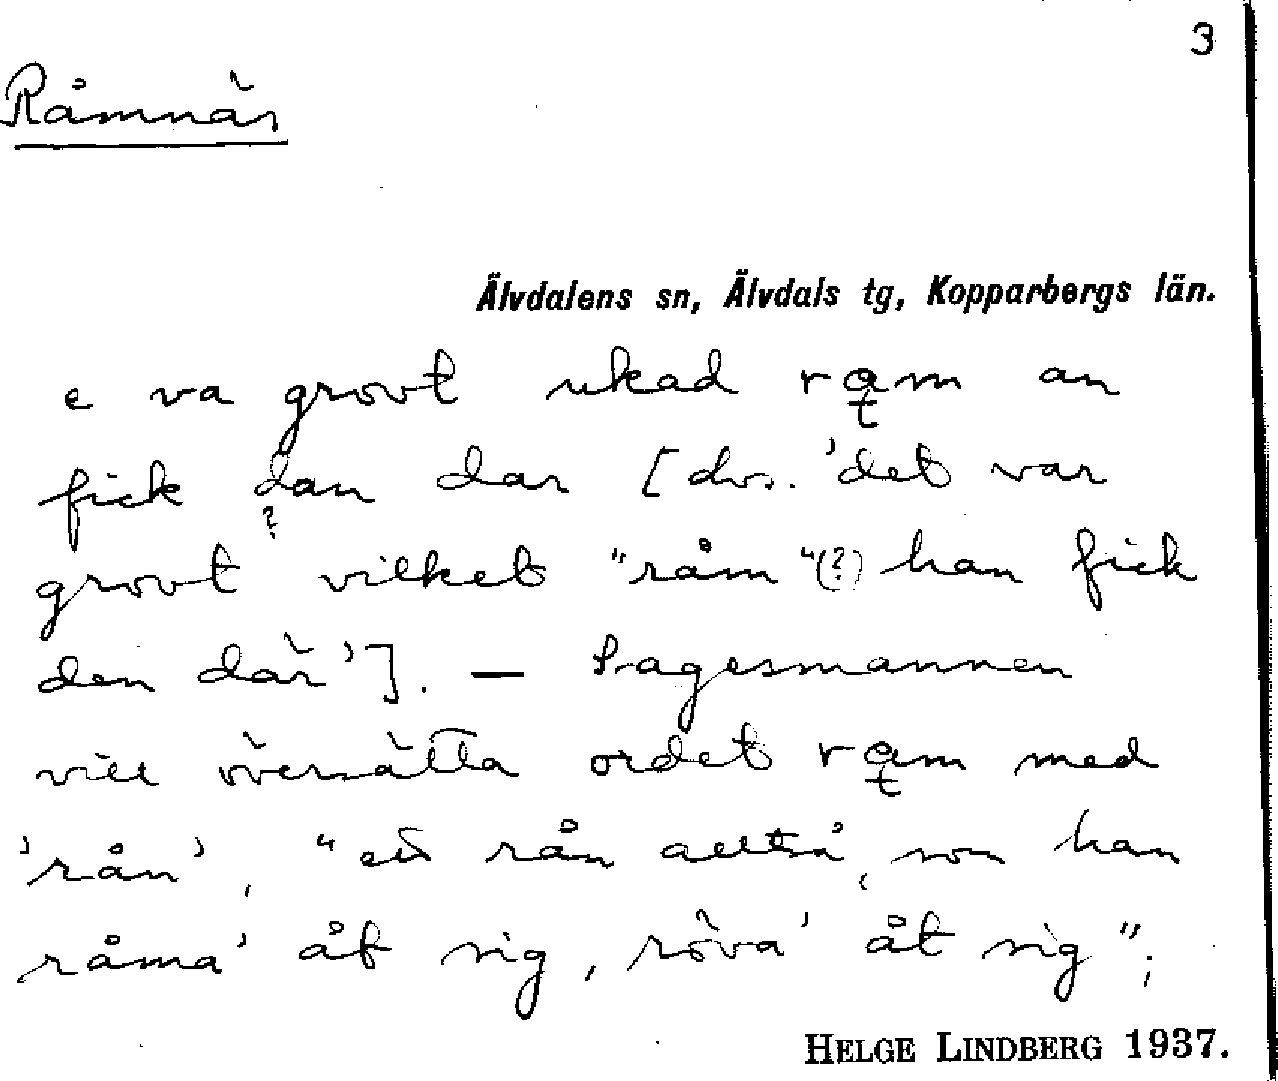 3
Råmnäs
Älvdalens sn, Älvdals tg, Kopparbergs län.
e va grovt ukad rąm an
fick dan dar [dvs. 'det var
?
grovt vilket "råm"(?) han fick
den där']. — Sagesmannen
vill översätta ordet rąm med
'rån', "ett rån alltså, som han
råma' åt sig, röva' åt sig";
HELGE LINDBERG 1937.